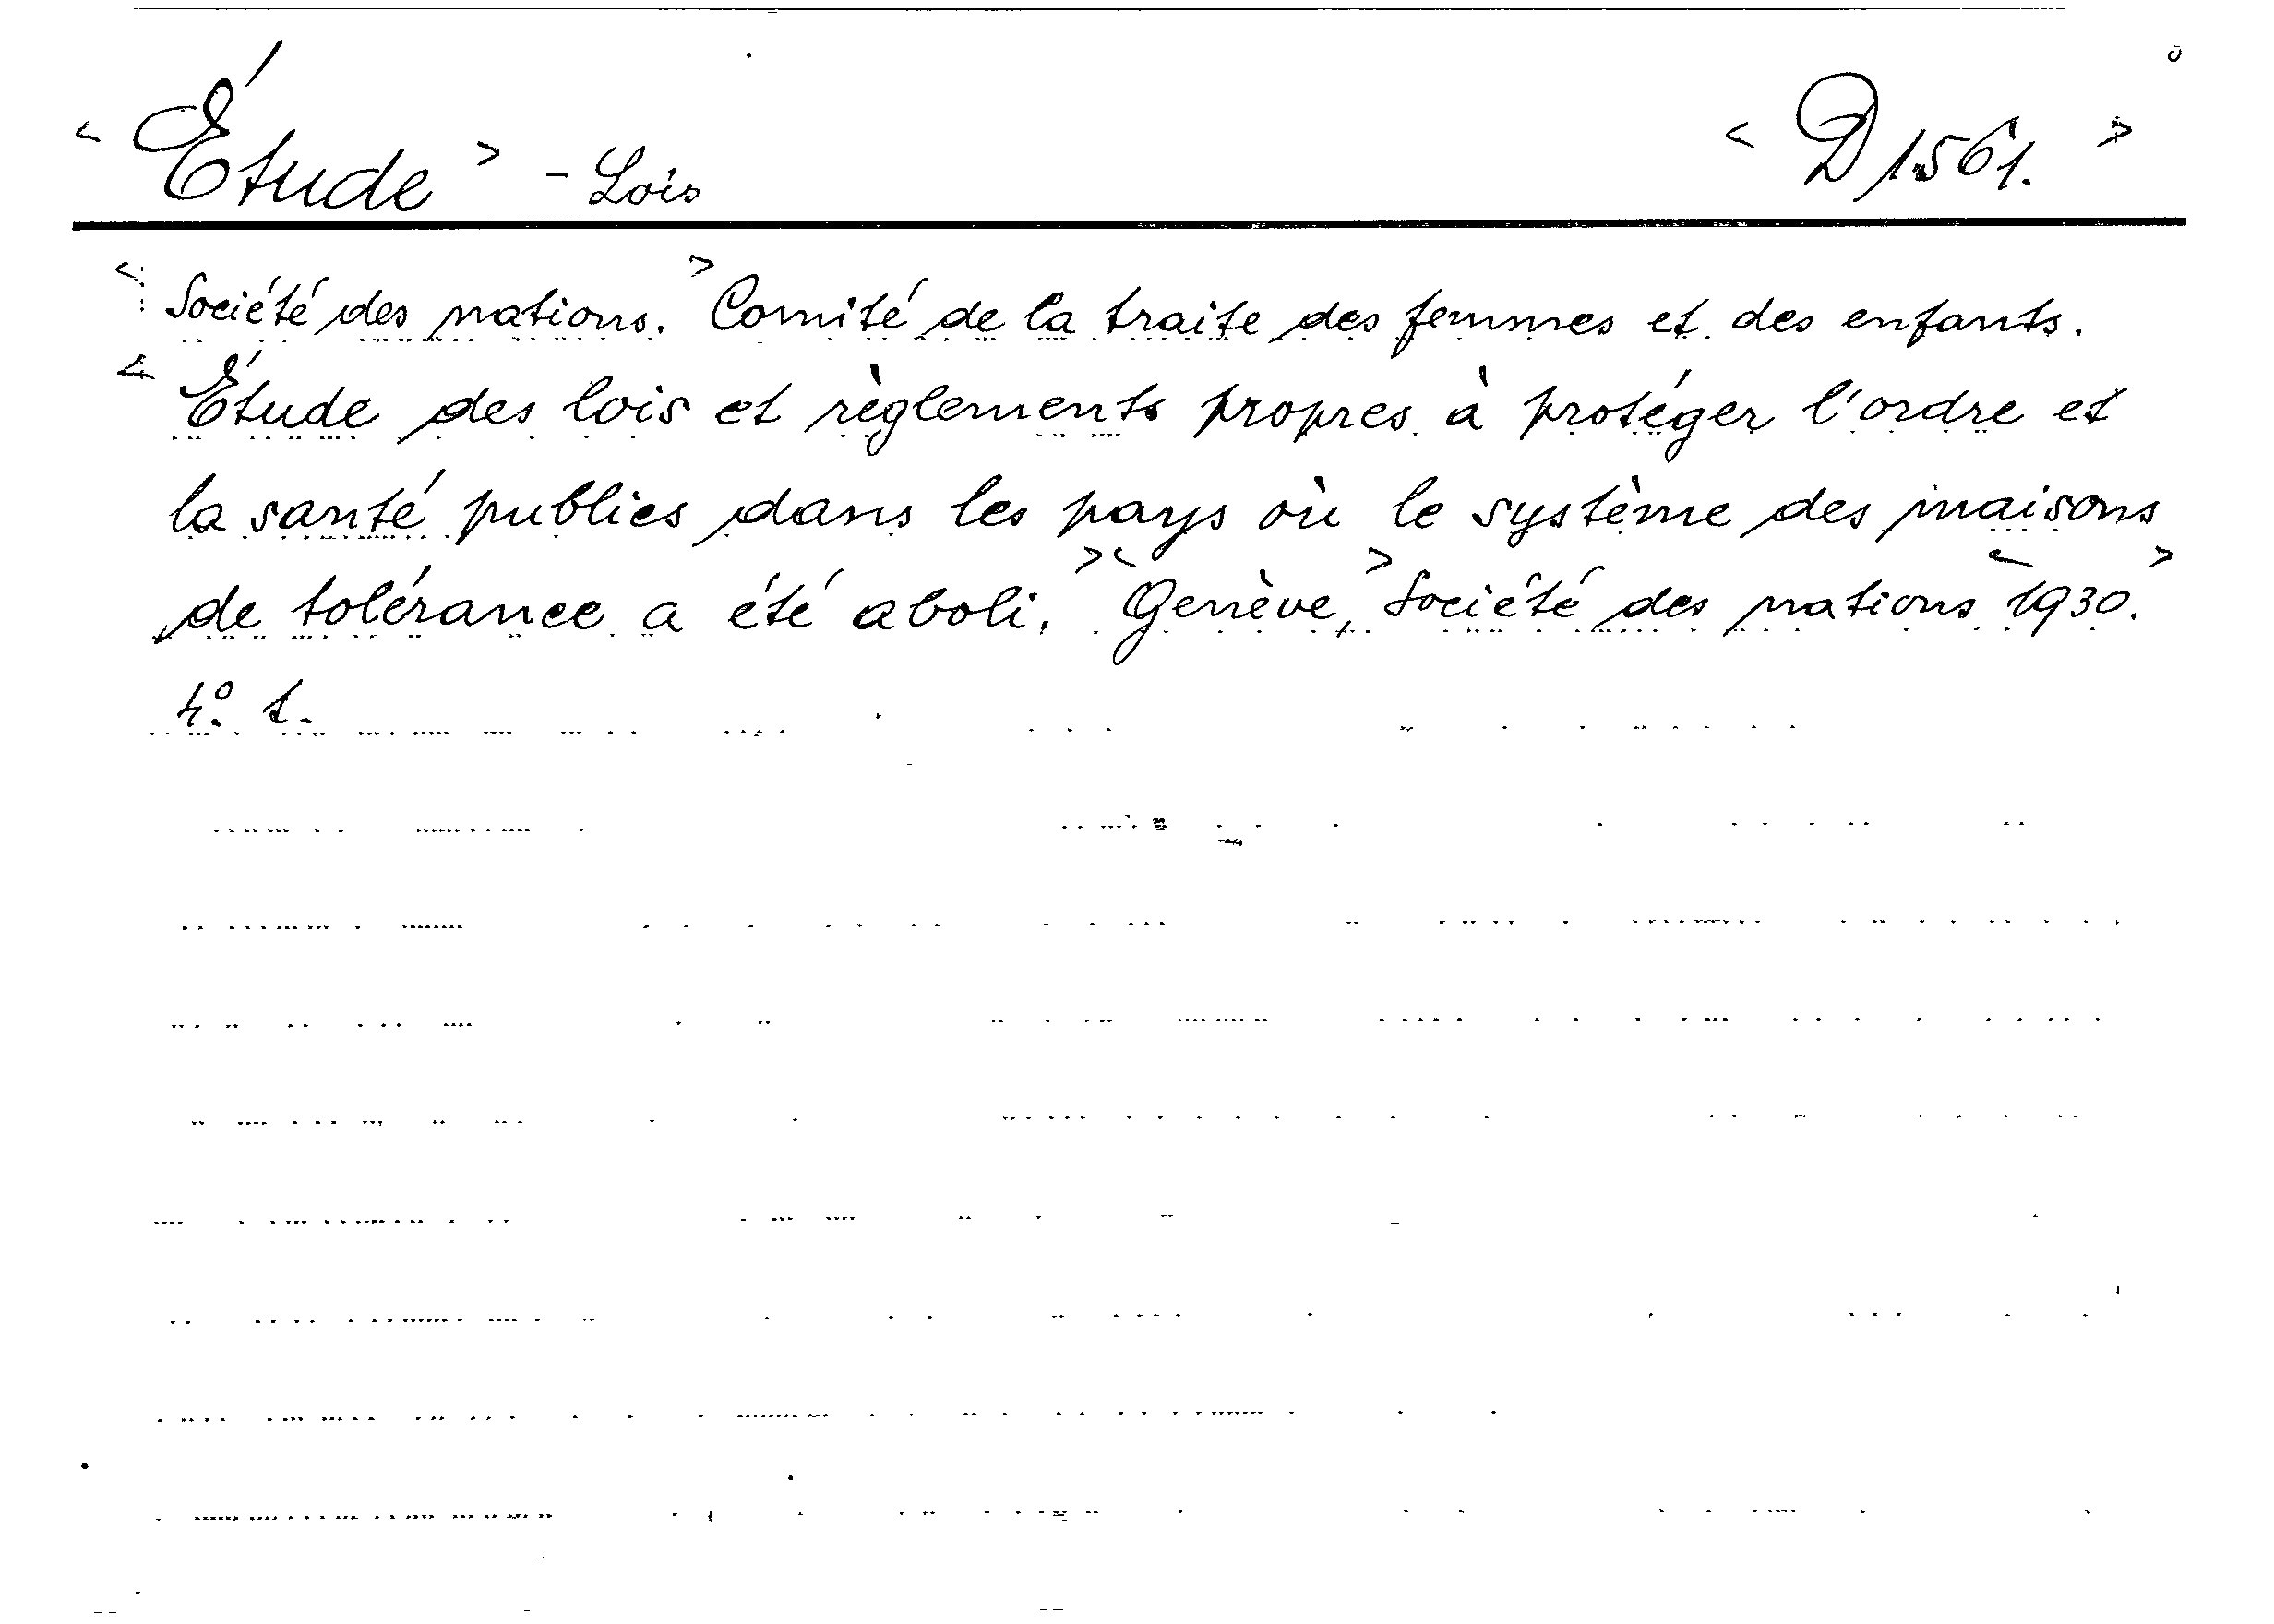 < Étude > - Lois < D 1561. >
< Société des nations. > Comité de la traite des femmes et des enfants.
< Étude des lois et règlements propres à protéger l'ordre et
la santé publics dans les pays où le système des maisons
de tolérance a été aboli. > < Genève, > Société des nations < 1930. >
4º. 1.